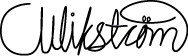 CWikström